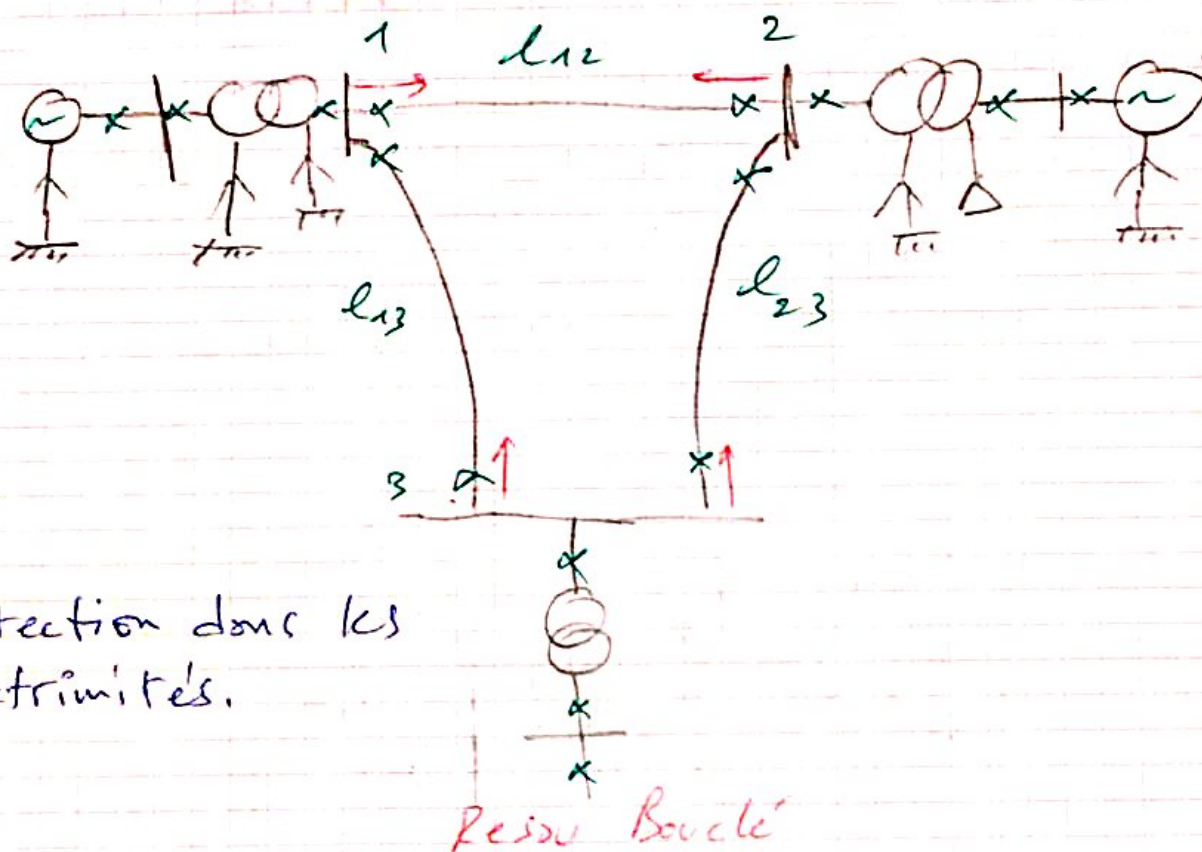 1
2
l12
l13
l23
3
tection dans les
trimités.
Reisou Bouclé